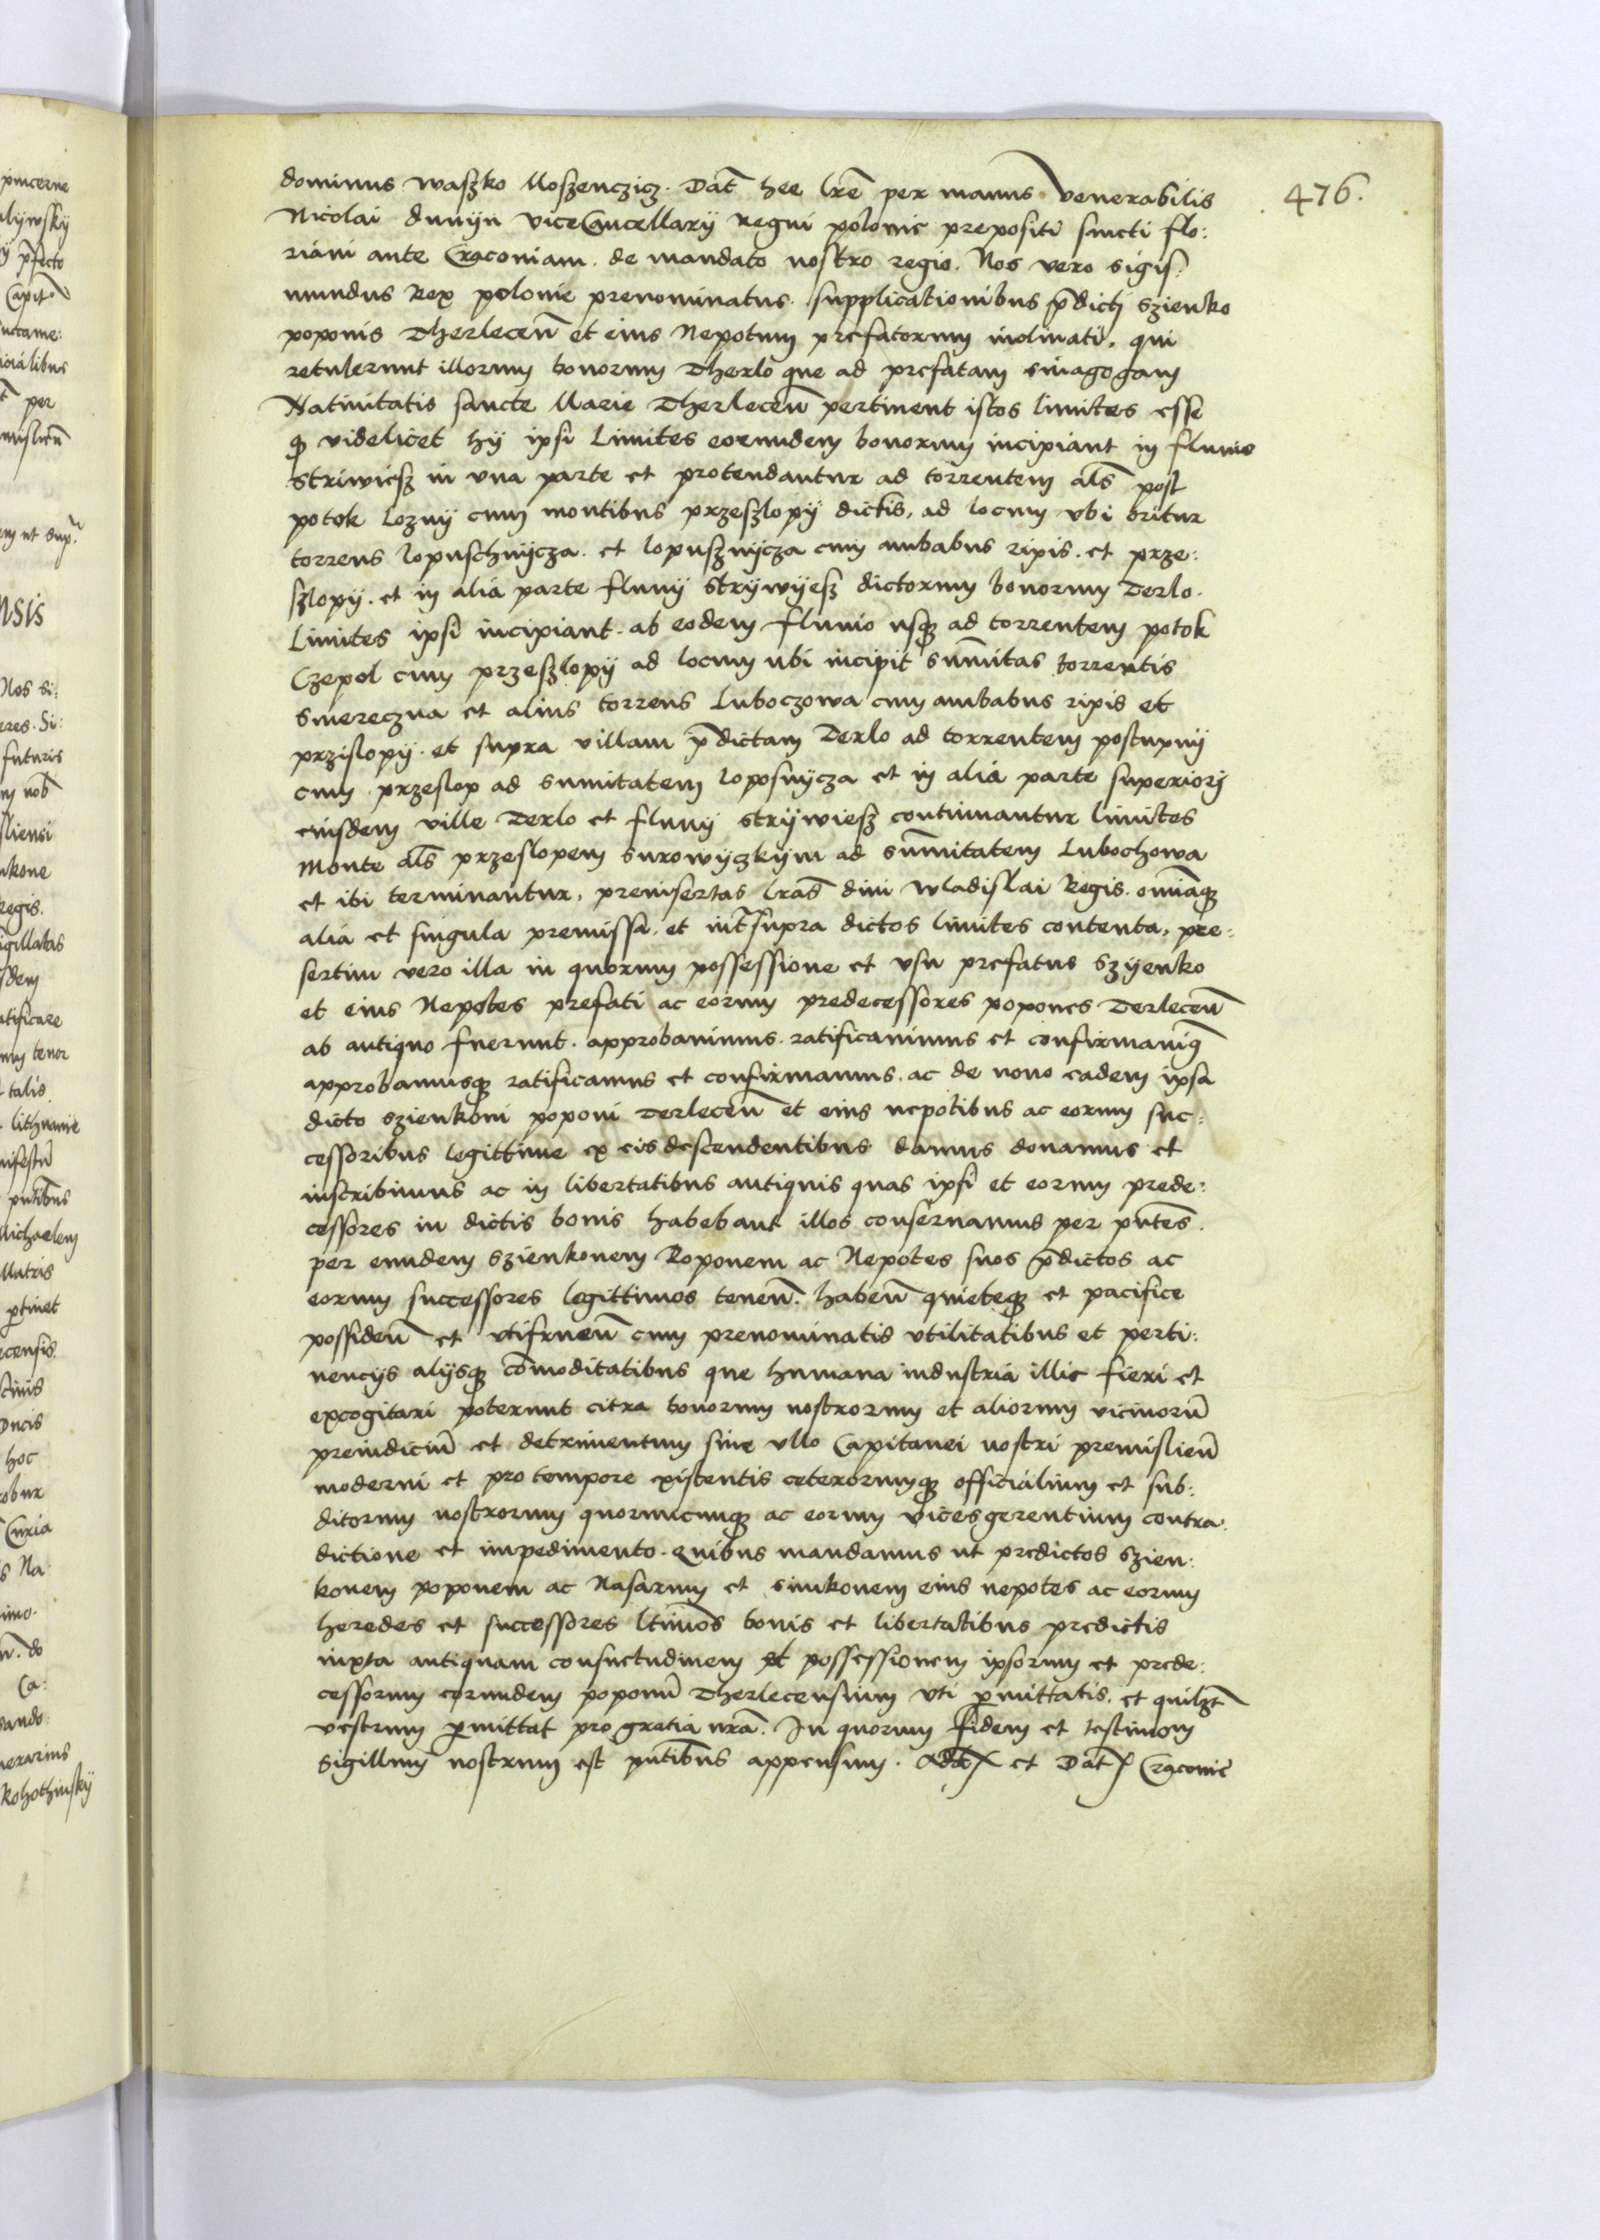 476.
dominus waszko Moszenczicz. Dat̃ hee lrẽ per manus venerabilis
Nicolai dunyn viceCancellarÿ regni polonie prepositi sancti flo:
riani ante Cracoviam. de mandato nostro regio. Nos vero sigis:
mundus Rex polonie prenominatus. supplicationibus p̃dictj szienko
poponis Dherleceñ et eius Nepotum prefatorum inclinati, qui
retulerunt illorum bonorum Dherlo que ad prefatam sinagogam
Natiuitatis sancte Marie Dherleceñ pertinent istos limites esse
qꝫ videlicet hÿ ipsi Limites eorundem bonorum incipiant in fluuio
striwiesz in vna parte et protendantur ad torrentem al̃s post
potok Loznÿ cum montibus przeszlopÿ dictis, ad locum vbi oritur
torrens lopuschnÿcza. et lopusznÿcza cum ambabus ripis. et prze:
szlopÿ. et in alia parte fluuÿ strÿwÿesz dictorum bonorum Derlo.
Limites ipsi incipiant. ab eodem fluuio usqꝫ ad torrentem potok
Czepel cum przeszlopÿ ad locum ubi incipit sum̃itas torrentis
smereczna et alius torrens Luboczowa cum ambabus ripis et
przislopÿ. et supra villam p̃dictam Derlo ad torrentem postupnÿ
cum przeslop ad sumitatem loposnÿcza et in alia parte superiorj
eiusdem ville Derlo et fluuÿ strÿwiesz continuantur limites
Monte al̃s przeslopem surowÿczkÿm ad sum̃itatem Lubochowa
et ibi terminantur, preinsertas lrãs diui wladislai Regis. omniaqꝫ
alia et singula premissa. et int̃ supra dictos limites contenta, pre:
sertim vero illa in quorum possessione et vsu prefatus szÿenko
et eius Nepotes prefati ac eorum predecessores popones Derleceñ
ab antiquo fuerunt. approbauimus. ratificauimus et confirmauimꝯ
approbamusqꝫ ratificamus et confirmamus. ac de nouo eadem ipsa
dicto szienkoni poponi Derleceñ et eius nepotibus ac eorum suc:
cessoribus legittime ex eis descendentibus damus donamus et
inscribimus ac in libertatibus antiquis quas ipsi et eorum prede:
cessores in dictis bonis habebant illos conseruamus per pñtes.
per eundem szienkonem Poponem ac Nepotes suos p̃dictos ac
eorum successores legittimos teneñ. habeñ quieteqꝫ et pacifice
possideñ et vtifrueñ cum prenominatis vtilitatibus et perti:
nencÿs alÿsqꝫ com̃oditatibus que humana industria illic fieri et
excogitari poterunt citra bonorum nostrorum et aliorum vicinorũ
preiudiciũ et detrimentum sine vllo Capitanei nostri premislieñ
moderni et pro tempore existentis ceterorumqꝫ officialium et sub:
ditorum nostrorum quorumcunqꝫ ac eorum vicesgerentium contra.
dictione et impedimento. Quibus mandamus ut predictos szien:
konem poponem ac Nasarum et simkonem eius nepotes ac eorum
heredes et successores ltimos bonis et libertatibus predictis
iuxta antiquam consuetudinem et possessionem ipsorum et prede:
cessorum eorundem poponũ Dherlecensium vti p̃mittatis. et quilꝫt
vestrum p̃mittat pro gratia nrã. In quorum fidem et testimonium
sigillum nostrum est pñtibus appensum. Act̃ et Dat̃ Cracouie